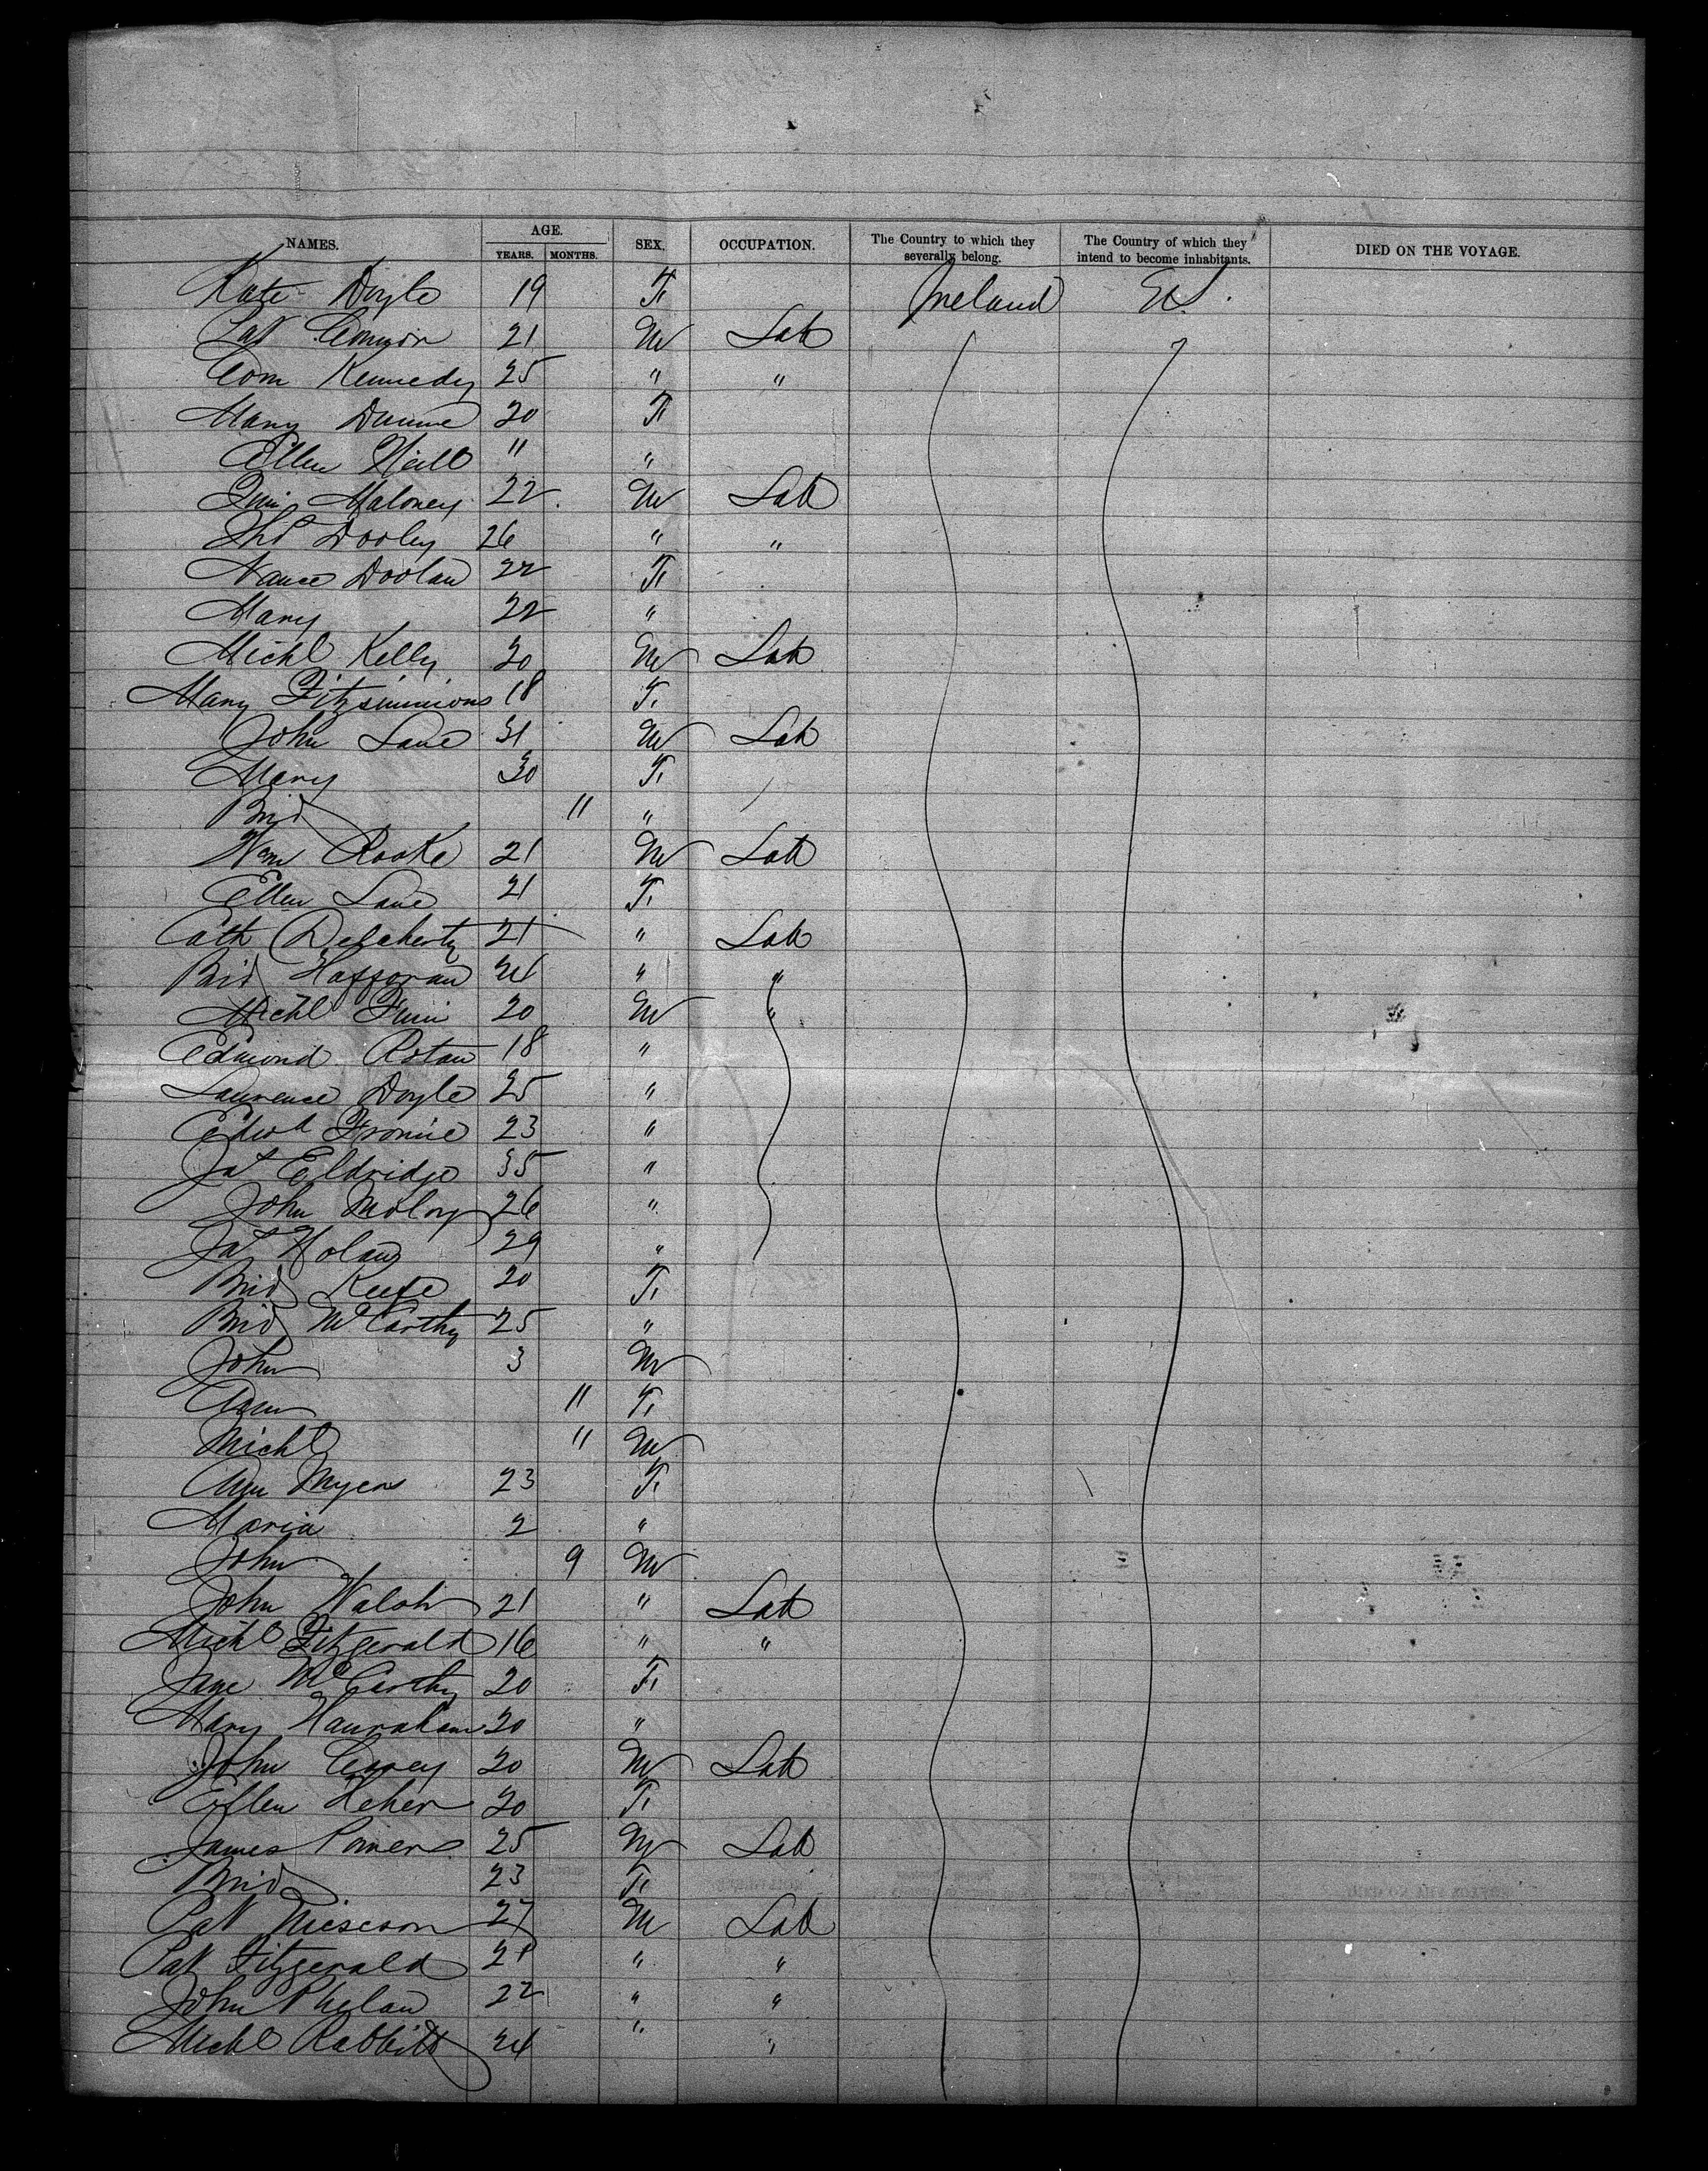 NAMES. AGE. SEX. OCCUPATION. The Country to which they severally belong. The Country of which they intend to become inhabitants. DIED ON THE VOYAGE.
YEARS. MONTHS.
Kate Doyle 19 F. Ireland
Pat Connor 21 M Lab
Tom Kennedy 25 " "
Mary Dunne 20 F
Ellen Neill " "
Maloney 22 M Lab
Thos Dooley 26 " "
Nance Doolan 22 F.
Mary 22 "
Michl Kelly 20 M Lab
Mary Fitzsimmons 18 F.
John Lane 31 M Lab
Mary 30 F.
Brid 11 "
Wm Rooke 21 M Lab
Ellen Lane 21 F.
Cath 21 " Lab
Brid 24 " "
Michl 20 M "
Edmond 18 "
Laurence Doyle 25 "
Edwd 23 "
Jas Eldridge 35 "
John Moloy 26 "
Jas 29 "
Brid Keefe 20 F.
Brid McCarthy 25 "
John 3 M
Ann 11 F.
Michl 11 M
Ann Myers 23 F.
Maria 2 "
John 9 M
John Walsh 21 " Lab
Michl Fitzgerald 16 " "
Jane McCarthy 20 F.
Mary Hanrahan 20 "
John 20 M Lab
Ellen 20 F.
James Powers 25 M Lab
Brid 23 F.
Pat 27 M Lab
Pat Fitzgerald 21 " "
John Phelan 22 " "
Michl Rabbitt 24 " "